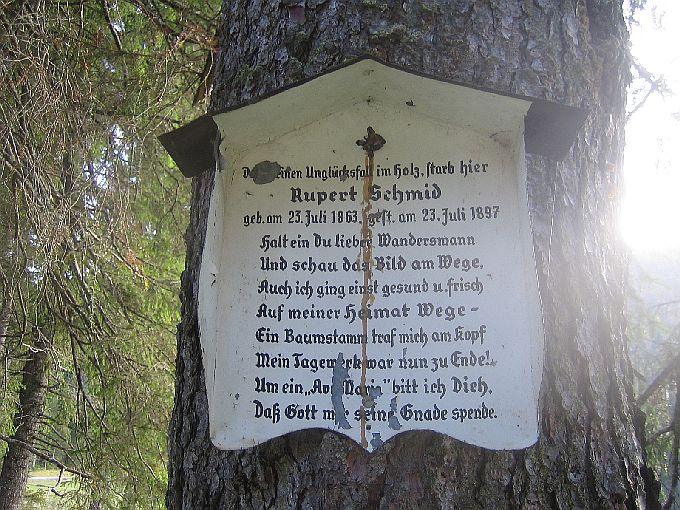 Durch einen Unglücksfall im Holz, starb hier
Rupert Schmid
geb. am 23. Juli 1863, gest. am 23. Juli 1897
Halt ein Du lieber Wandersmann
Und schau das Bild am Wege.
Auch ich ging einst gesund u. frisch
Auf meiner Heimat Wege -
Ein Baumstamm traf mich am Kopf
Mein Tagewerk war nun zu Ende!
Um ein „Ave Maria" bitt ich Dich,
Daß Gott mir seine Gnade spende.